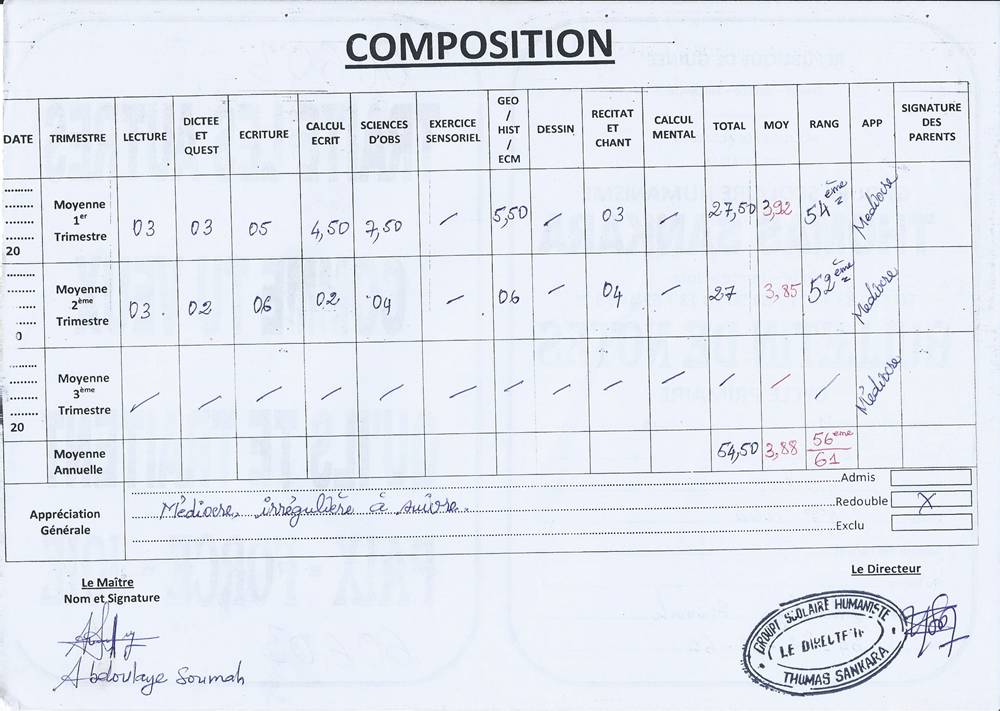 COMPOSITION
DATE TRIMESTRE LECTURE DICTEE ET QUEST ECRITURE CALCUL ECRIT SCIENCES D'OBS EXERCICE SENSORIEL GEO / HIST / ECM DESSIN RECITAT ET CHANT CALCUL MENTAL TOTAL MOY RANG APP SIGNATURE DES PARENTS
Moyenne 1er Trimestre 03 03 05 4,50 7,50 / 5,50 / 03 / 27,50 3,92 54ème Médiocre
20
Moyenne 2ème Trimestre 03 02 06 02 04 / 06 / 04 / 27 3,85 52ème Médiocre
0
Moyenne 3ème Trimestre / / / / / / / / / / / / / Médiocre
20
Moyenne Annuelle 54,50 3,88 56ème/61
Appréciation Générale
Médiocre, irrégulière à suivre.
Admis
Redouble X
Exclu
Le Maître
Nom et Signature
Abdoulaye Soumah
Le Directeur
GROUPE SCOLAIRE HUMANISTE
LE DIRECTEUR
THOMAS SANKARA